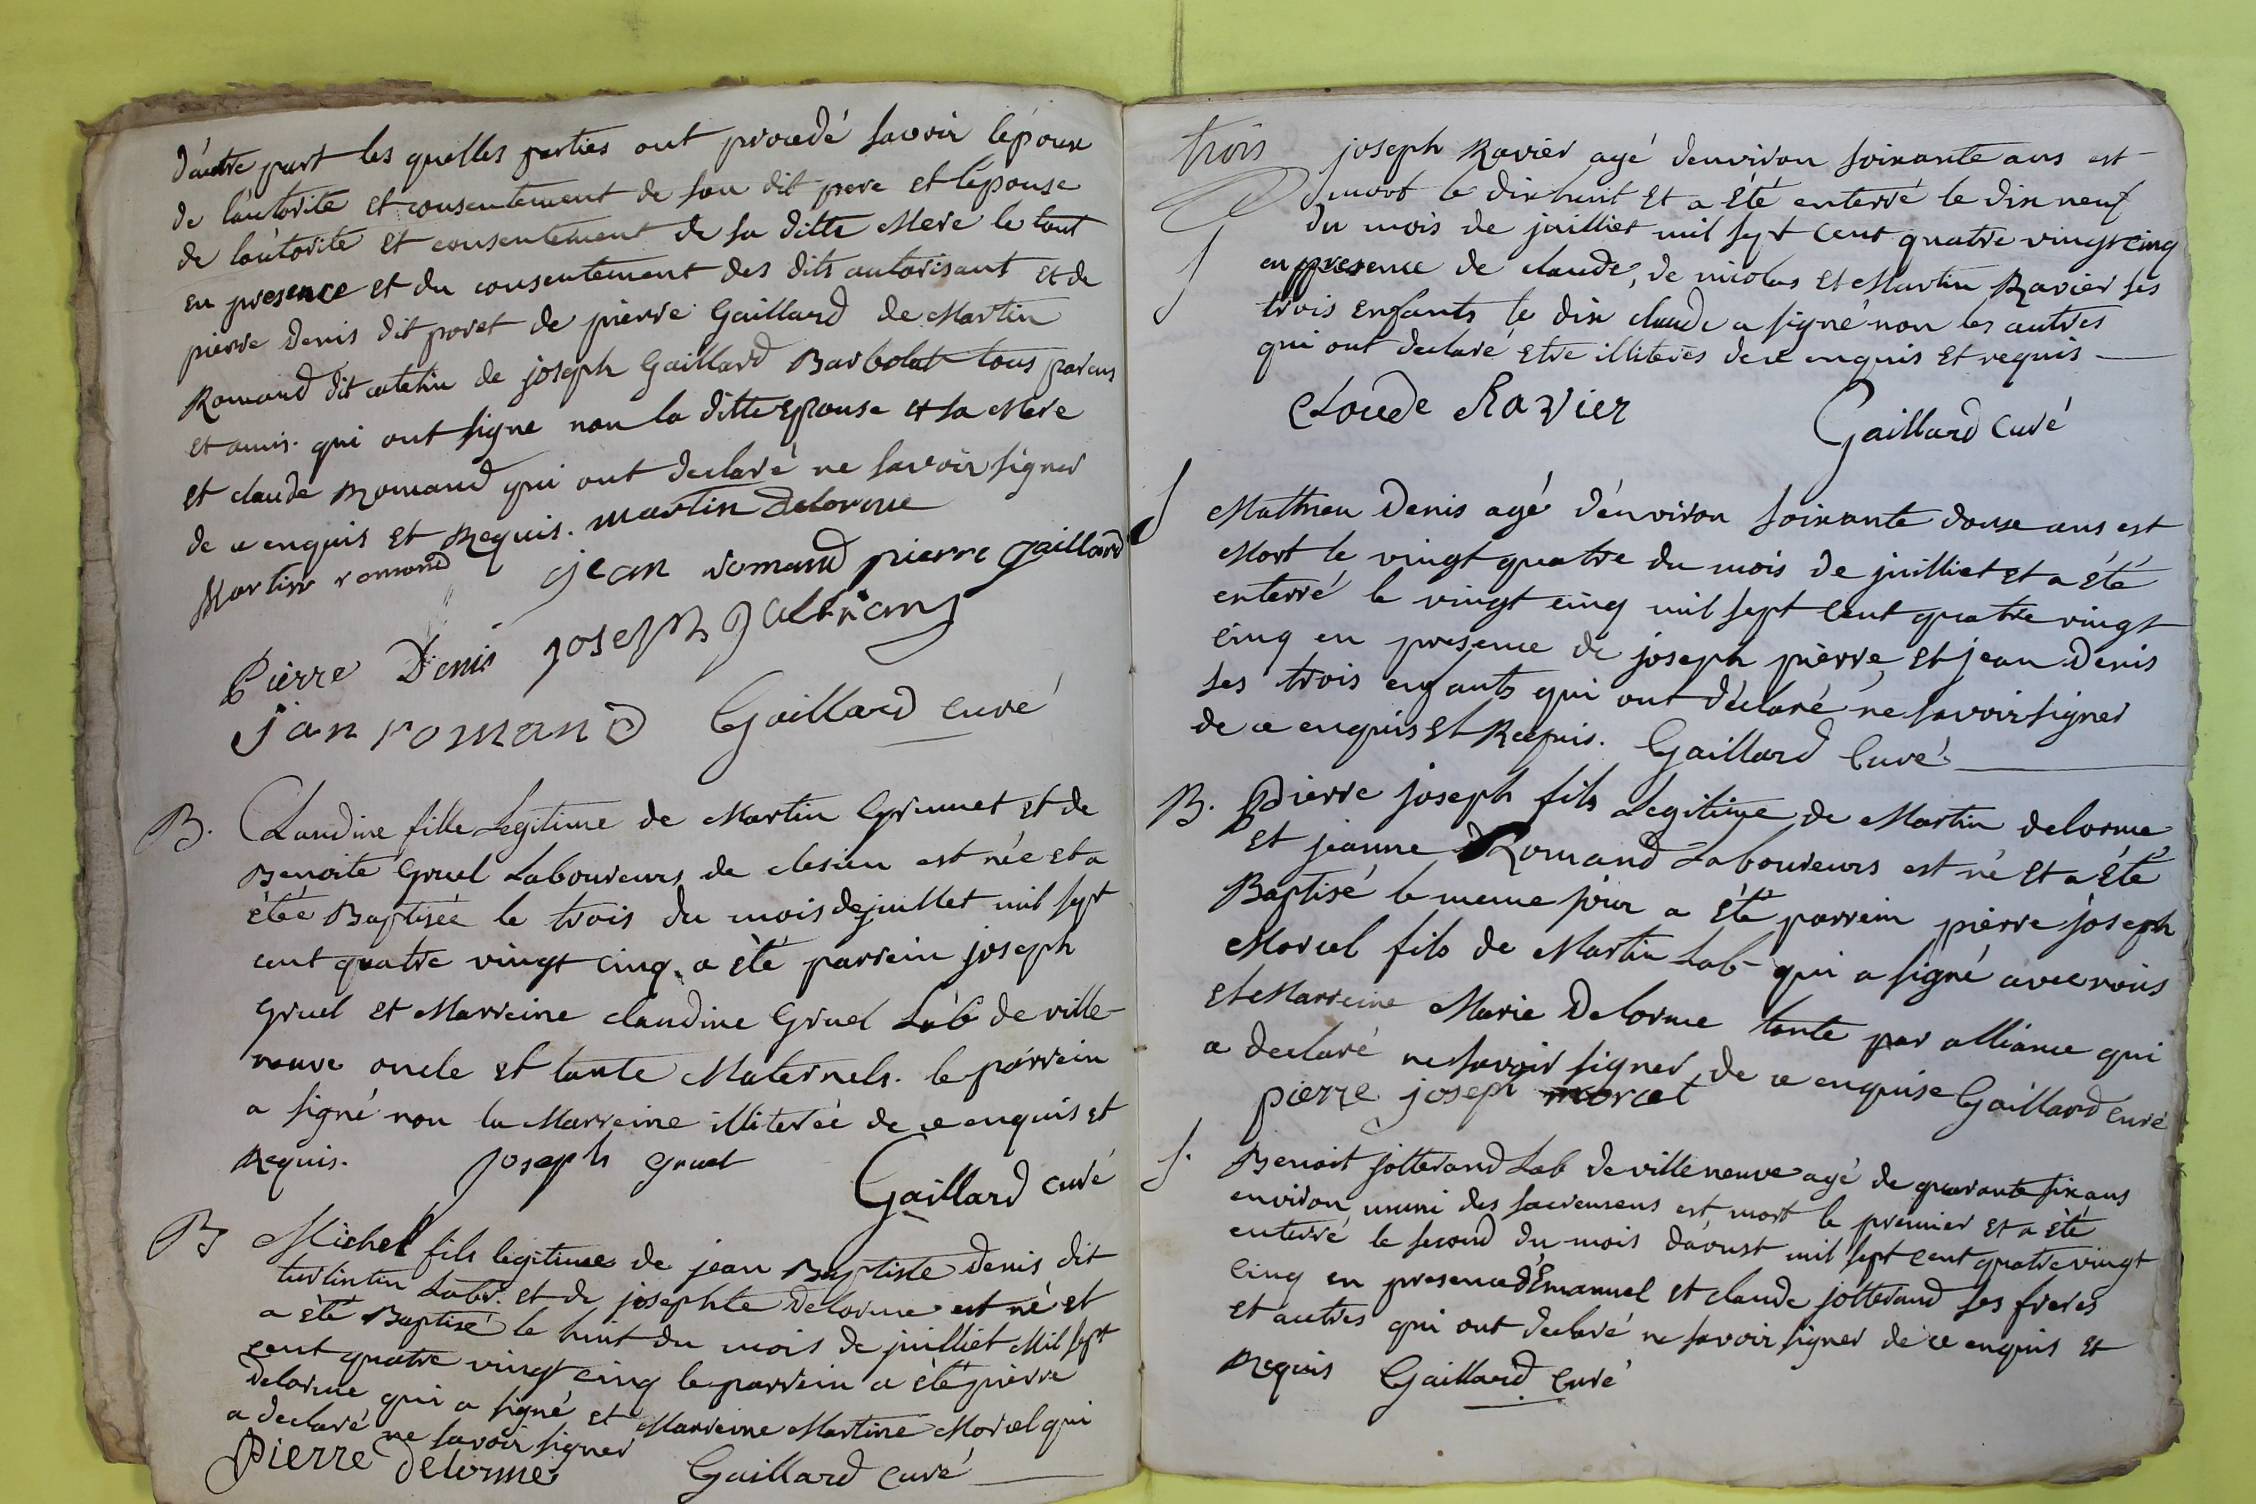 d'autre part les quelles parties ont procedé savoir l'époux
de l'autorité et consentement de son dit pere et l'épouse
de l'autorité et consentement de sa ditte Mere le tout
en presence et du consentement des dits autorisant et de
pierre Denis dit poret de pierre Gaillard de Martin
Romand dit catelin de joseph Gaillard Barbolat tous parens
et amis. qui ont signe non la ditte Epouse et sa Mere
et claude Romand qui ont declaré ne savoir signer
de ce enquis et Requis. martin delorme
Martin romand jean romand pierre gaillard
Pierre Denis joseph
jan romand Gaillard curé
B. Claudine fille Legitime de Martin Grumet et de
Benoite Gruel Laboureurs de clesieu est née et a
étée Baptisée le trois du mois de juillet mil sept
cent quatre vingt cinq a été parrein joseph
Gruel et Marreine claudine Gruel Lab de ville-
neuve oncle et tante Maternels. le parrein
a signé non la Marreine illiterée de ce enquis et
Requis. joseph gruel
Gaillard curé
B Michel fils legitime de jean Baptiste Denis dit
turlintin Labr. et de josephte Delorme est né et
a été Baptisé le huit du mois de juilliet Mil sept
cent quatre vingt cinq le parrein a été pierre
Delorme qui a signé et Marreine Martine Morcel qui
a declaré ne savoir signer
Pierre delorme Gaillard curé
trois joseph Ravier agé denviron soixante ans est
mort le dix huit et a été enterré le dix neuf
du mois de juilliet mil sept cent quatre vingt cinq
S en presence de claude, de nicolas et Martin Ravier ses
trois enfants le dix claude a signé non les autres
qui ont declaré etre illiteres de ce enquis et requis
Cloude Ravier
Gaillard curé
S Mathieu Denis agé d'environ soixante douse ans est
Mort le vingt quatre du mois de juilliet et a été
enterré le vingt cinq mil sept cent quatre vingt
cinq en presence de joseph pierre, et jean Denis
ses trois enfants qui ont déclaré ne savoir signer
de ce enquis et Requis. Gaillard Curé
B. Pierre joseph fils Legitime de Martin delorme
et jeanne Romand Laboureurs est né et a été
Baptisé le meme jour a été parrein pierre joseph
Morcel fils de Martin Lab- qui a signé avec nous
et Marreine Marie Delorme tante par alliance qui
a declaré ne savoir signer de ce enquise Gaillard curé
pierre joseph morcel
S. Benoit jotterand Lab de villeneuve agé de quarante six ans
environ muni des sacremens est mort le premier et a été
enterré le second du mois d'aoust mil sept cent quatre vingt
cinq en presence d'Emanuel et claude jotterand ses freres
et autres qui ont declaré ne savoir signer de ce enquis et
Requis Gaillard curé